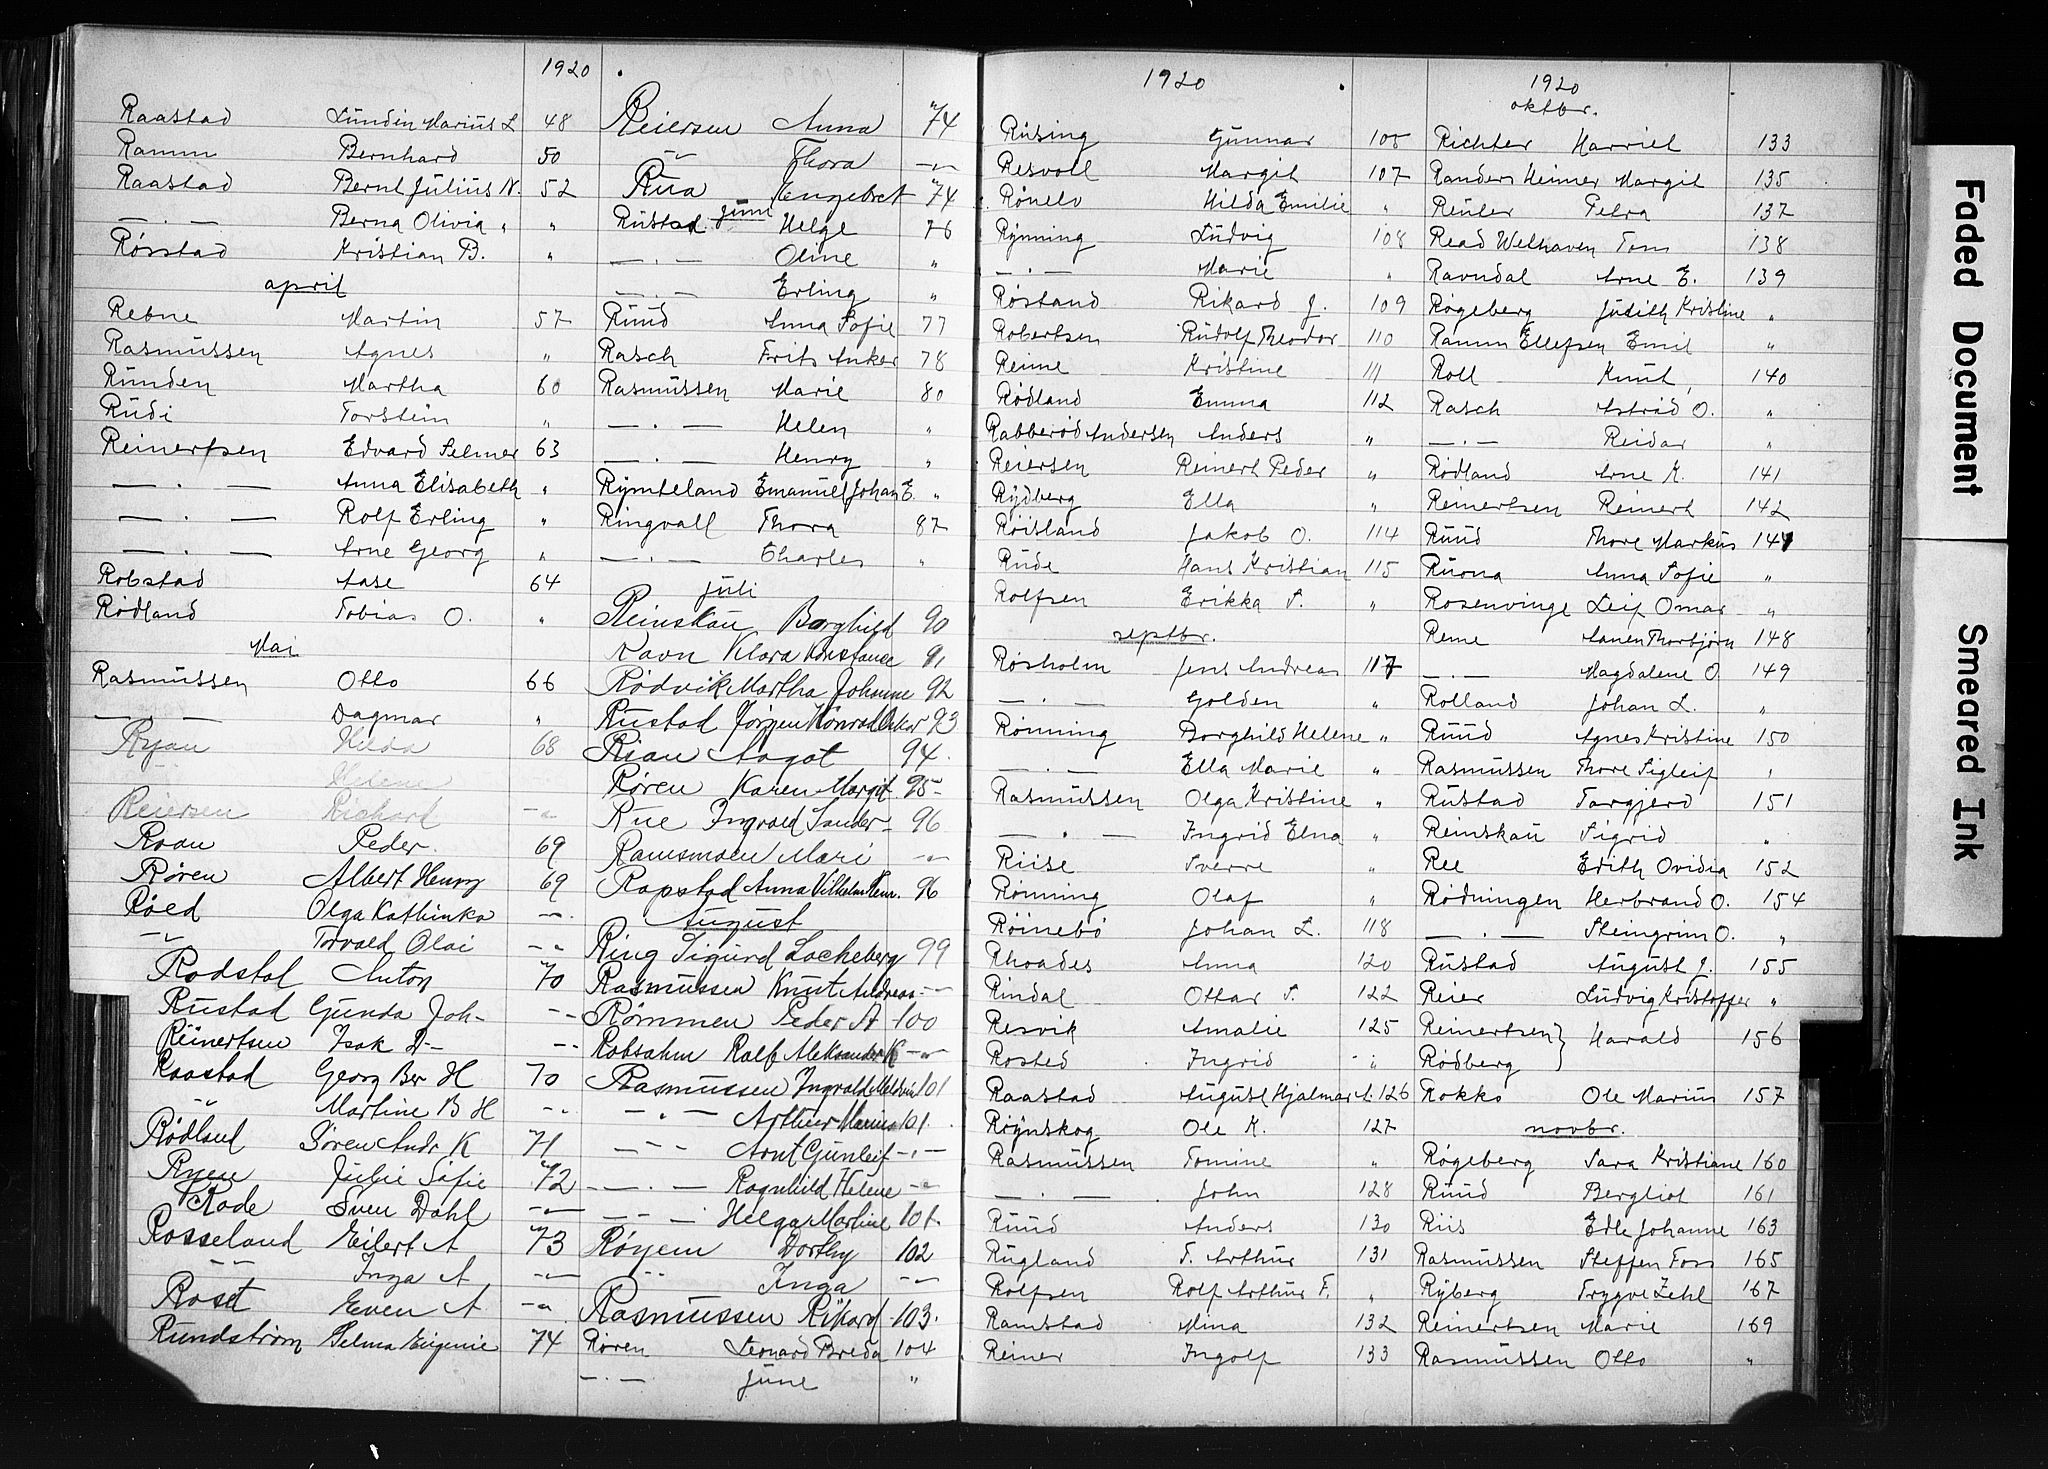 1920
Raastad Lundin Marius L 48
Ramm Bernhard 50
Raastad Bernt Julius N. 52
— . — Berna Olivia " "
Røsstad Kristian B. "
april
Rebne Martin 57
Rasmussen Agnes "
Runden Martha 60
Rudi Torstein "
Reinertsen Edvard Selmer 63
— . — Anna Elisabeth "
— . — Rolf Erling "
— . — Arne Georg "
Robstad Aase 64
Rødland Tobias O. "
Mai
Rasmussen Otto 66
— — Dagmar "
Ryan Hilda 68
Helene
Reiersen Richard -"-
Roan Peder. 69
Røren Albert Henry 69
Røed Olga Kathinka -"-
-"- Torvald Olai -"-
Rodstol Anton 70
Rustad Gunda Joh- -"-
Reinertsen Isak D- -"-
Raastad Georg Ber H 70
-"- Martine B H -"-
Rødlund Søren Andr K 71
Ryen Julie Sofie 72
Rode Sven Dahl -"-
Rosseland Eilert A 73
-"- Inga A -"-
Roset Even A -"-
Rundstrøm Selma Eugenie 74
Reiersen Anna 74
-"- Thora -"-
Rua Engebret 74
Juni
Rustad Helge 76
— . — Oline "
— . — Erling "
Ruud Anna Sofie 77
Rasch Frits Anker 78
Rasmussen Marie 80
— . — Helen "
— . — Henry "
Rymteland Emanuel Johan E. "
Ringvall Thora 87
— . — Charles "
juli
Reinskau Borghild 90
Ravn Klara Konstanse 91
Rødvik Martha Johanne 92
Rustad Jörgen Konrad Oskar 93
Rian Aagot 94.
Røren Karen Margit 95-
Rue Ingvald Sander- 96
Ramsmoen Mari -"-
Rapstad Anna Vilhelm 96
August
Ring Sigurd Lockeberg 99
Rasmussen Knut Andreas -"-
Rømmen Peder A 100
Robsahm Rolf Aleksander K -"-
Rasmussen Ingvald 101
- . - Arthur Marius 101.
- - - Arnt Gunleif - . -
- . - Ragnhild Helene -"-
- - - Helga Martine 101.
Røyem Dorthy 102
-"- Inga -"-
Rasmussen Rikard 103.
Røren Leonard Breda 104
— . — June "
1920
Rusing Gunnar 105
Resvoll Margit 107
Rønelv Hilda Emilie "
Rynning Ludvig 108
— . — Marie "
Røstand Rikard J. 109
Robertsen Rudolf Theodor 110
Reime Kristine 111
Rødland Emma 112
Rabberød Andersen Anders "
Reiersen Reinert Peder "
Rydberg Ella "
Røisland Jakob O. 114
Rude Hans Kristian 115
Rolfsen Erikka S. "
septbr.
Røsholm Jens Andreas 117
— . — Golden "
Rønning Borghild Helene "
— . — Ella Marie "
Rasmussen Olga Kristine "
— . — Ingrid Elna "
Riise Sverre "
Rønning Olaf "
Røinebø Johan L. 118
Rhoades Anna 120
Rindal Ottar S. 122
Resvik Amalie 125
Rosted Ingrid "
Raastad August Hjalmar A. 126
Røynskog Ole K. 127
Rasmussen Tomine "
— . — John 128
Ruud Anders 130
Rugland T. Arthur 131
Rolfsen Rolf Arthur F. "
Ramstad Mina 132
Reiner Ingolf 133
1920
oktbr.
Richter Harriet 133
Randers Heimer Margit 135
Reuler Petra 137
Read Welhaven Tom 138
Ravndal Arne E. 139
Røgeberg Judith Kristine "
Ramm Ellefsen Emil "
Roll Knut 140
Rasch Astrid O. "
— . — Reidar "
Rødland Arne K. 141
Reinertsen Reinert 142
Ruud Thore Markus 147
Ruona Anna Sofie "
Rosenvinge Leif Omar "
Reme Aanen Thorbjørn 148
— . — Magdalene O. 149
Rolland Johan L. "
Ruud Agnes Kristine 150
Rasmussen Thore Sigleif "
Rustad Targjerd 151
Reinskau Sigrid "
Ree Edith Ovidia 152
Rødningen Herbrand O. 154
— . — Steingrim O. "
Rustad August J. 155
Reier Ludvig Kristoffer "
Reinertsen } Harald 156
Rødberg }
Rokko Ole Marius 157
novbr.
Røgeberg Sara Kristiane 160
Ruud Bergliot 161
Riis Edle Johanne 163
Rasmussen Steffen Foss 165
Ryberg Trygve Zehl 167
Reinertsen Marie 169
Rasmussen Otto "
Faded Document
Smeared Ink